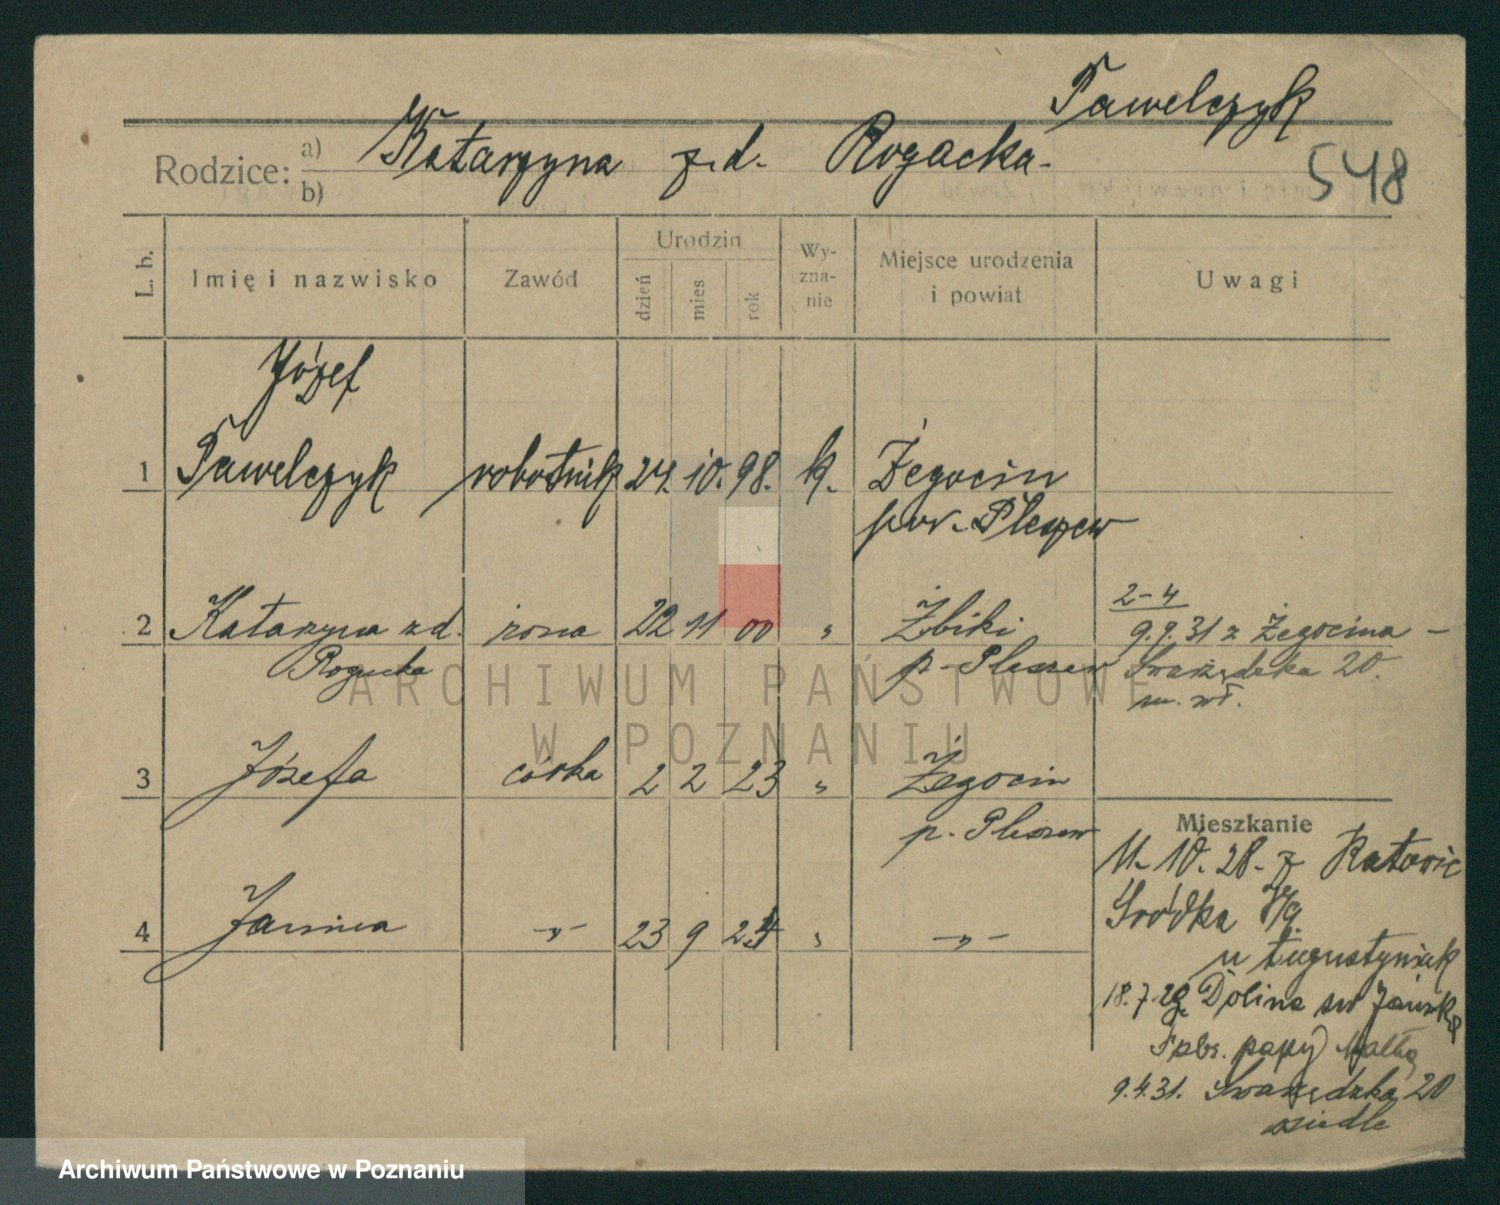 Pawelczyk
Rodzice: a) b) Katarzyna z d. Rogacka.
548
L. b. Imię i nazwisko Zawód Urodzin dzień mies rok Wyznanie Miejsce urodzenia i powiat Uwagi
Józef
1 Pawelczyk robotnik 24. 10. 98. k. Żegocin
pow. Pleszew
2 - 4
2 Katarzyna z d. żona 22 11 00 " Żbiki 9.9.31 z Żegocina -
Rogacka p. Pleszew Swarzędzka 20.
m. wł.
3 Józefa córka 2 2 23 " Żegocin
p. Pleszew
4 Janina -"- 23 9 24 " -"-
Mieszkanie
11. 10. 28. z Katowic
Śródka
u Augustyniak
18.7.29 Dolina
9.4.31. Swarzędzka 20
osiedle
ARCHIWUM PAŃSTWOWE
W POZNANIU
Archiwum Państwowe w Poznaniu